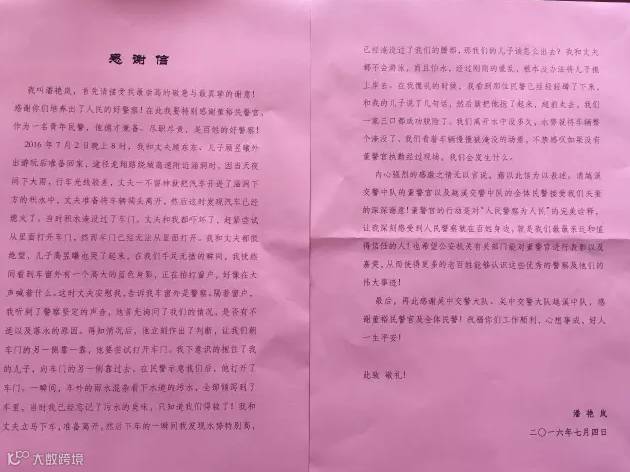 感谢信
我叫潘艳岚，首先请接受我最崇高的敬意与最真挚的谢意！
感谢你们培养出了人民的好警察！在此我要特别感谢董裕民警官，
作为一名青年民警，他德才兼备、尽职尽责，是百姓的好警察！
2016年7月2日晚上8时，我和丈夫顾东东、儿子顾昱曦外
出游玩后准备回家，途径龙翔路绕城高速附近涵洞时，因当天夜
间下大雨，行车光线较差，丈夫一不留神就把汽车开进了涵洞下
方的积水中，丈夫准备将车辆驶出离开，然后这时发现汽车已经
熄火了，当时积水淹没过了车门，丈夫和我都吓坏了，赶紧尝试
从里面打开车门，然而车门已经无法从里面打开。我和丈夫都很
绝望，儿子顾昱曦也哭了起来，在我们手足无措的瞬间，我恍然
间看到车窗外有一个高大的蓝色身影，正在拍打窗户，好像在大
声喊着什么。这时丈夫安慰我，告诉我车窗外是警察。隔着窗户，
我听到了警察坚定的声音，他首先询问了我们的情况，是否有不
适以及落水的原因。得知情况后，他立刻作出了判断，让我们朝
车门的另一侧靠一靠，他要尝试打开车门。我下意识的抱住了我
的儿子，向车门的另一侧靠过去。在民警示意我们后，他打开了
车门。一瞬间，车外的雨水混杂着下水道的污水，全部倾泻到了
车里，当时我已经忘记了污水的臭味，只知道我们得救了！我和
丈夫立马下车，准备离开，然后下车的一瞬间我发现水势特别高，
已经淹没过了我们的腰部，那我们的儿子该怎么出去？我和丈夫
都不会游泳，而且怕水，经过刚刚的慌乱，根本没办法将儿子抱
上岸去。在我慌乱的时候，我看到那位民警已经轻轻蹲了下来，
和我的儿子说了几句话，然后就把他抱了起来，趟前走去，我们
一家三口都成功脱险了。在我们离开水中没多久，水势就将车辆整
个淹没了。我们看着车辆慢慢被淹没的场景，不禁感叹如果没有
董警官执勤经过现场，我们会发生什么。
内心强烈的感激之情无以言说，难以此信为以表达，请越溪
交警中队的董警官以及越溪交警中队的全体民警接受我们夫妻
的深深谢意！董警官的行动是对“人民警察为人民”的完美诠释，
让我深刻感受到人民警察就在百姓身边，就是我们最最亲近和值
得信任的人！也希望公安机关有关部门能对董警官进行表彰以及
嘉奖，从而使得更多的老百姓能够认识这些优秀的警察及他们的
伟大事迹！
最后，再此感谢吴中交警大队、吴中交警大队越溪中队，感
谢董裕民警官及全体民警！祝福你们工作顺利、心想事成、好人
一生平安！
此致 敬礼！
潘艳岚
二〇一六年七月四日
大数跨境